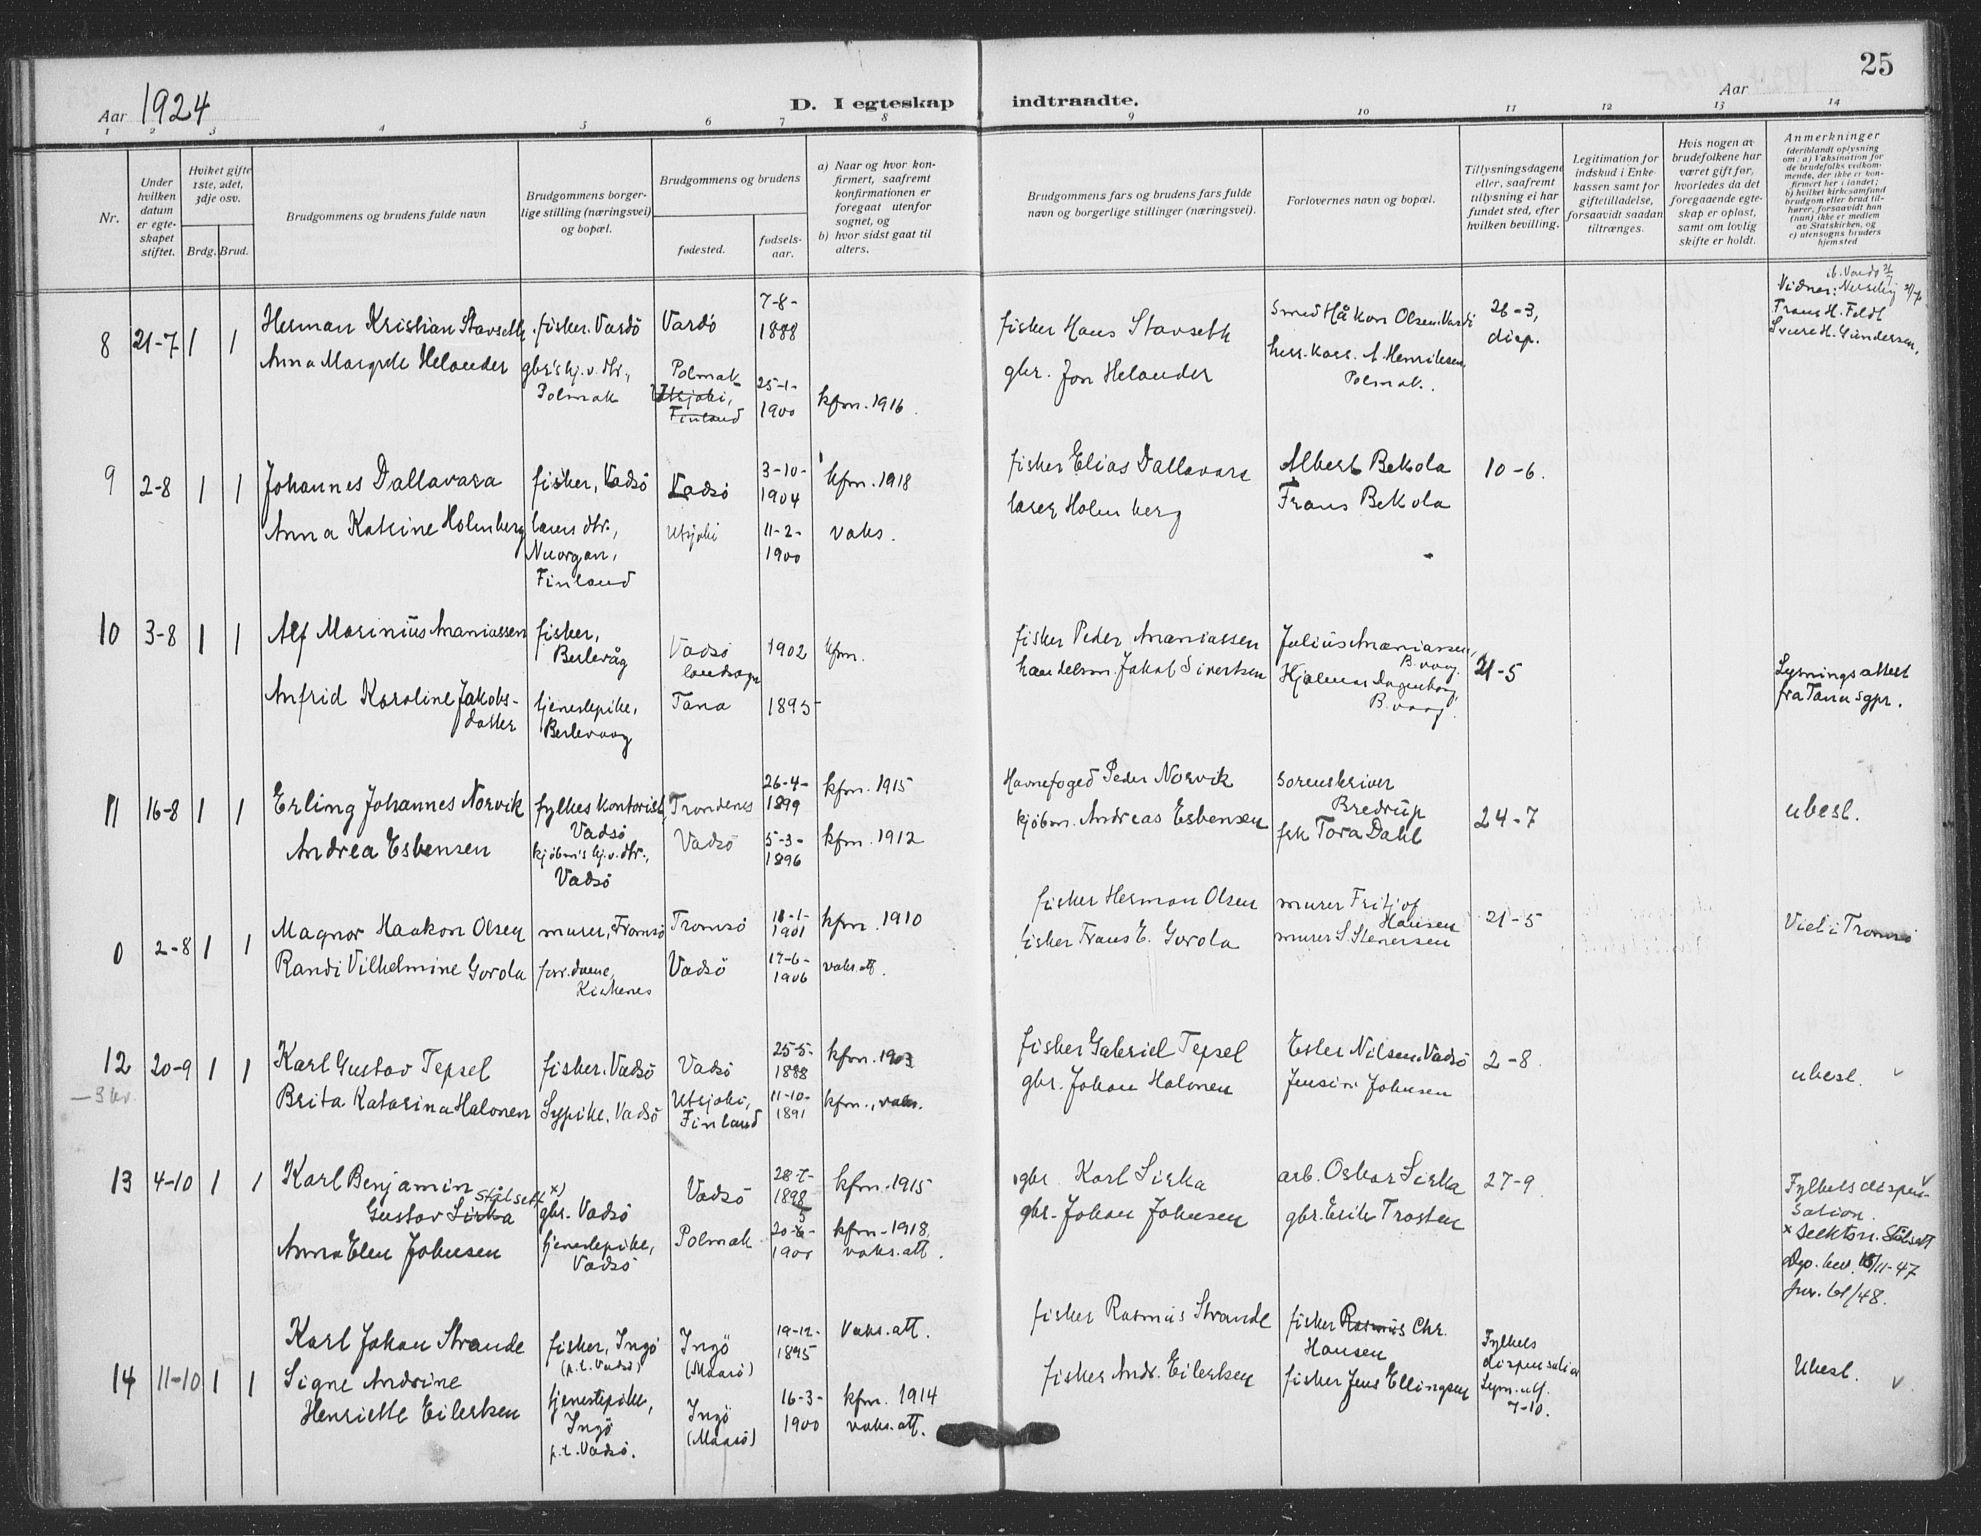 25
Aar 1924
D. I egteskap indtraadte.
Aar
1 2 3 4 5 6 7 8 9 10 11 12 13 14
Nr.
Under hvilken datum er egteskapet stiftet.
Hviket gifte 1ste, 2det, 3dje osv.
Brdg. Brud.
Brudgommens og brudens fulde navn
Brudgommens borgerlige stilling (næringsvei) og bopæl.
Brudgommens og brudens
fødested.
fødselsaar.
a) Naar og hvor konfirmert, saafremt konfirmationen er foregaat utenfor sognet, og
b) hvor sidst gaat til alters.
Brudgommens fars og brudens fars fulde navn og borgerlige stillinger (næringsvei).
Forlovernes navn og bopæl.
Tillysningsdagene eller, saafremt tillysning ei har fundet sted, efter hvilken bevilling.
Legitimation for indskud i Enkekassen samt for giftetilladelse, forsaavidt saadan tiltrænges.
Hvis nogen av brudefolkene har været gift før, hvorledes da det foregaaende egteskap er opløst, samt om lovlig skifte er holdt.
Anmerkninger (deriblandt oplysning om: a) Vaksination for de brudefolks vedkommende, der ikke er konfirmert her i landet; b) hvilket kirkesamfund brudgom eller brud tilhører, forsaavidt han (hun) ikke er medlem av Statskirken, og c) utensogns bruders hjemsted
8 21-7 1 1
Herman Kristian Stavseth fisker. Vardö Vardö 7-8-1888
fisker Hans Stavseth
smed Håkon Olsen. Vardö
26-3, disp.
Vidner: Nesseby
Frans H. Feldt
Sverre H. Gundersen,
Anna Margrete Helander gbr's hj.v.dtr., Polmak
Polmak Utsjoki, Finland 25-1-1900 kfm. 1916.
gbr. Jon Helander
A. Henriksen Polmak.
9 2-8 1 1
Johannes Dallavara fisker, Vadsö Vadsö 3-10-1904 kfm. 1918
fisker Elias Dallavara Albert Bekola 10-6.
Anna Katrine Holmberg lærers dtr., Nuorgan, Finland Utsjoki 11-2-1900 vaks.
lærer Holmberg Frans Bekola
10 3-8 1 1
Alf Marinius Ananiassen fisker, Berlevåg Vadsö landsogn 1902 kfm.
fisker Peder Ananiassen Julius Ananiassen, B.vaag. 21-5
Anfrid Karoline Jakobsdatter tjenestepike, Berlevaag Tana 1895
handelsm. Jakob Sivertsen Hjalmar Dagenborg, B.vaag.
Lysningsattest fra Tana sgpr.
11 16-8 1 1
Erling Johannes Norvik fylkeskontorist, Vadsö Trondenes 26-4-1899 kfm. 1915
Havnefoged Peder Norvik sorenskriver Bredrup 24-7 ubesl.
Andrea Esbensen kjøbm's hj.v.dtr., Vadsö Vadsö 5-3-1896 kfm. 1912
kjøbm. Andreas Esbensen frk Tora Dahl
0 2-8 1 1
Magnor Haakon Olsen murer, Tromsö Tromsö 18-1-1901 kfm. 1910
fisker Herman Olsen murer Fritjof Hansen 21-5 Viet i Tromsö
Randi Vilhelmine Gorola Kirkenes Vadsö 17-6-1906 vaks.att.
fisker Frans E. Gorola murer S. Stenersen
12 20-9 1 1
Karl Gustav Tepsel fisker. Vadsö Vadsö 25-5-1888 kfm. 1903
fisker Gabriel Tepsel Ester Nilsen. Vadsö 2-8. ubesl.
Brita Katarina Halonen Sypike. Vadsö Utsjoki, Finland 11-10-1891 kfm., vaks.
gbr. Johan Halonen Jensine Johnsen
13 4-10 1 1
Karl Benjamin Gustav Sirka Stålsett x) gbr. Vadsö Vadsö 28-7-1898 kfm. 1915
gbr. Karl Sirka arb. Oskar Sirka 27-9.
Fylkets dispensation.
x slektsn. Stålsett
Dep. bev. 18/11-47
Jnr. 61/48.
Anna Elen Johnsen tjenestepike, Vadsö Polmak 20-5-1900 kfm. 1918, vaks.att.
gbr. Johan Johnsen gbr. Erik Trosten
14 11-10 1 1
Karl Johan Strande fisker, Ingö (p.t. Vadsö) Ingö (Maasö) 19-12-1895 Vaks.att.
fisker Rasmus Strande fisker Rasmus Chr. Hansen
Fylkets dispensation Lysn.att. 7-10.
Ubesl.
Signe Andrine Henriette Eilertsen tjenestepike, Ingö p.t. Vadsö. Ingö (Maasö) 16-3-1900 kfm. 1914 vaks.att.
fisker Andr. Eilertsen fisker Jens Ellingsen